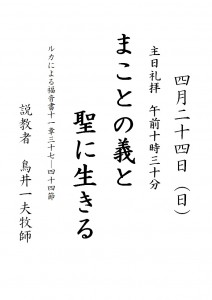 四月二十四日（日）
主日礼拝　午前十時三十分
まことの義と
聖に生きる
ルカによる福音書十一章三十七―四十四節
説教者　鳥井一夫牧師